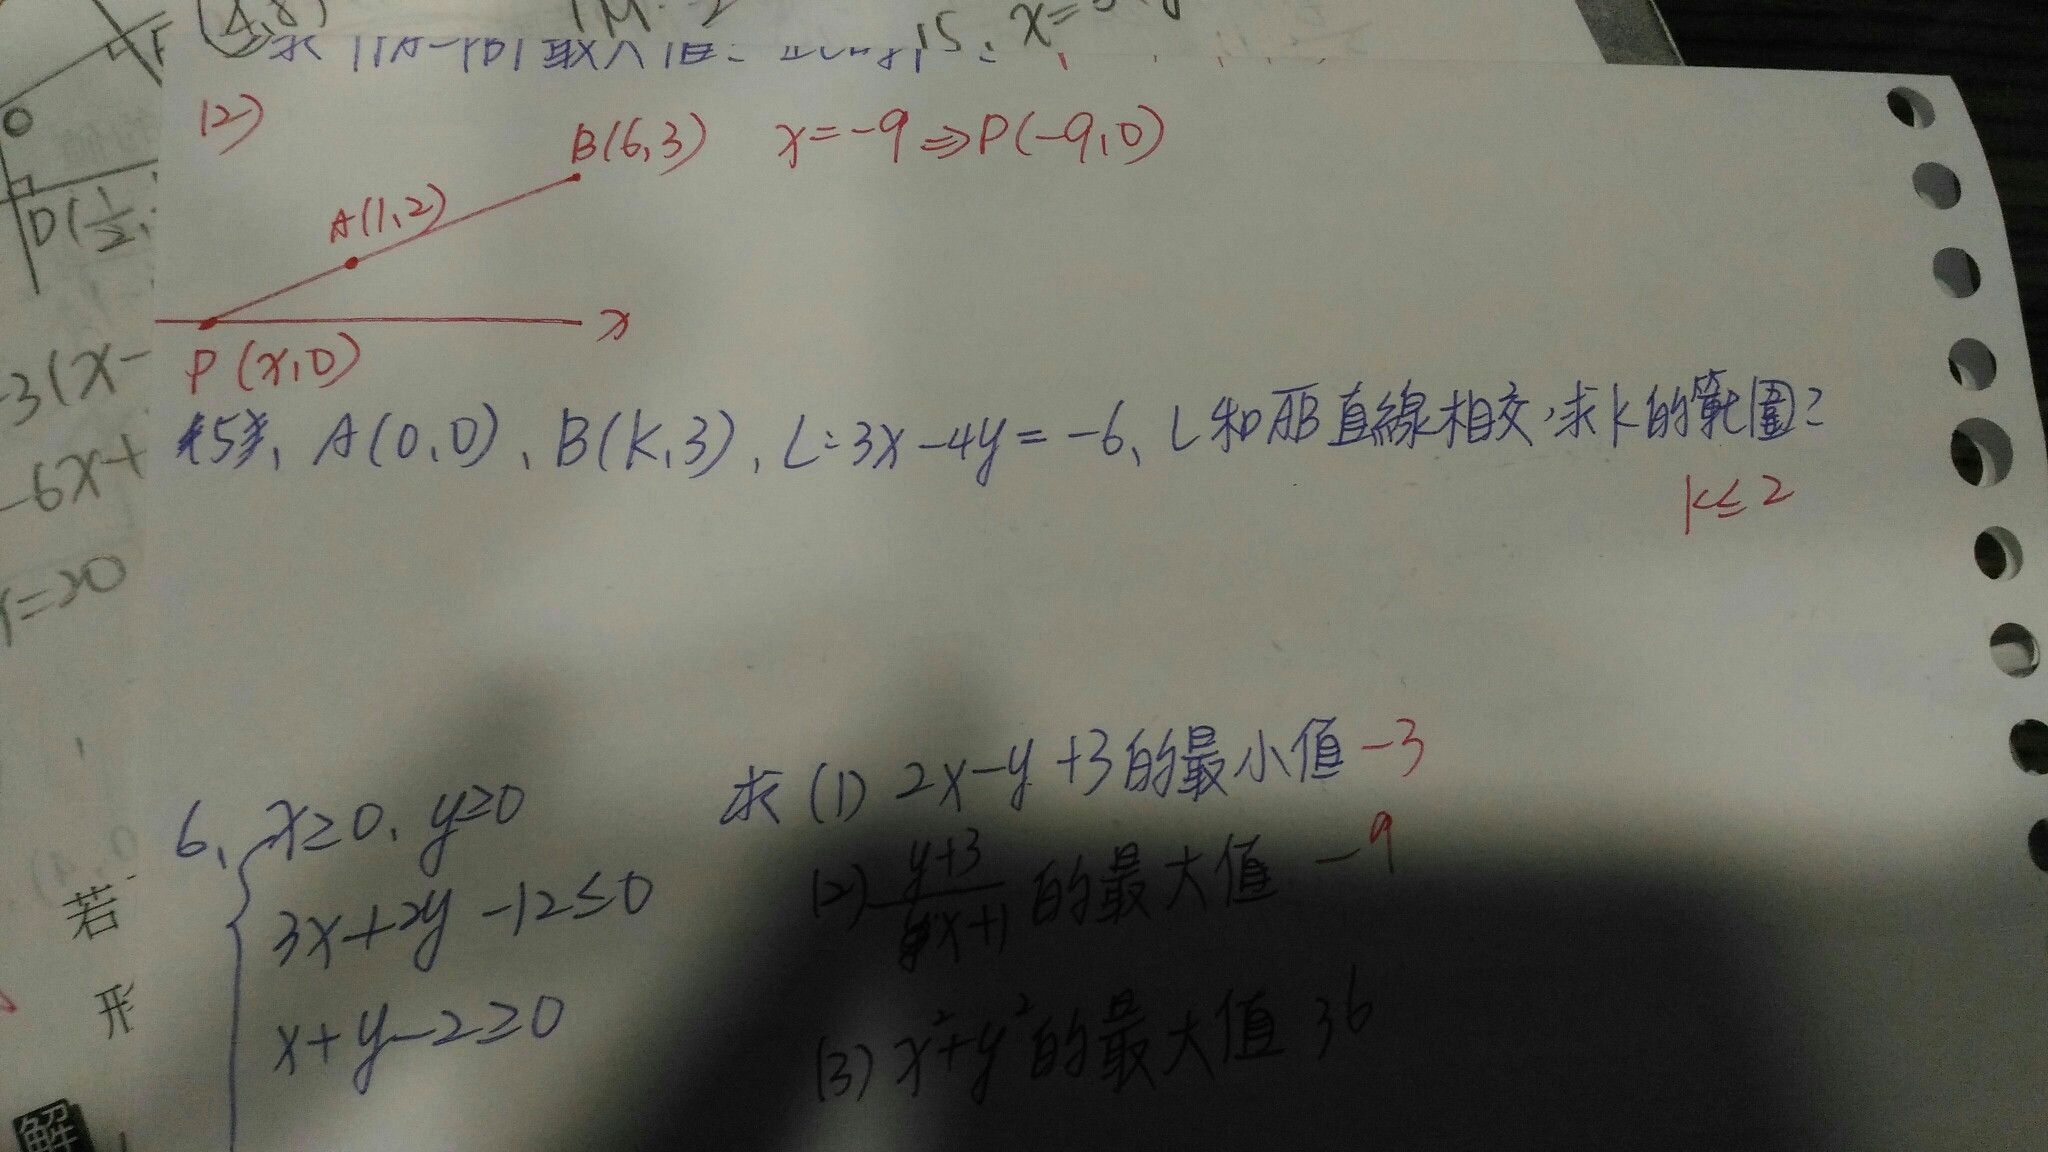 (4,8)
x=
(2)
B(6,3) x=-9⇒P(-9,0)
A(1,2)
x
P(x,0)
5、A(0,0)、B(k,3)、L:3x-4y=-6、L和AB直線相交,求k的範圍?
k≤2
6、x≥0、y≥0
3x+2y-12≤0
x+y-2≥0
求(1) 2x-y+3的最小值 -3
(2) y+3/x+1 的最大值 -9
(3) x²+y²的最大值 36
O
F
D(1/2,
-3(x-
-6x+
=20
若
形
解